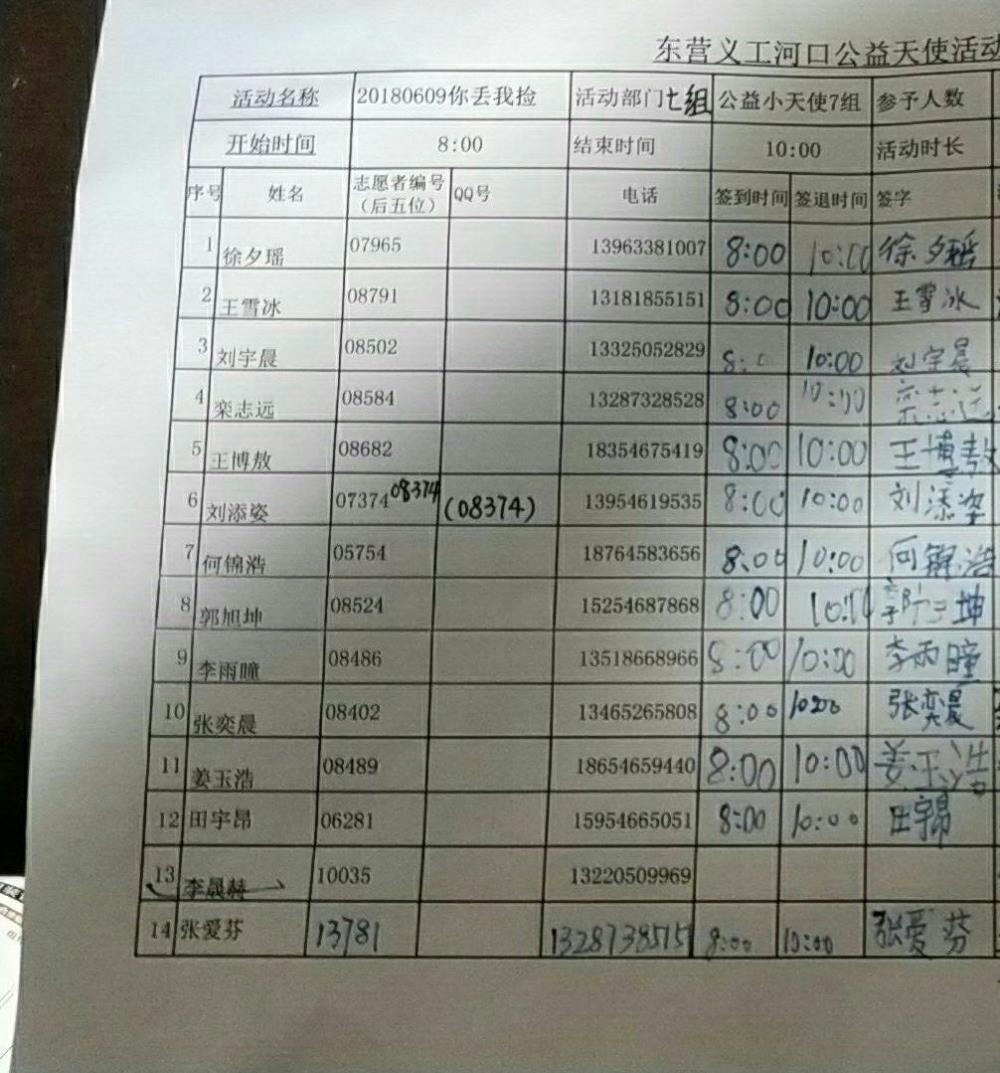 东营义工河口公益天使活动
活动名称 20180609你丢我捡 活动部门七组 公益小天使7组 参予人数
开始时间 8:00 结束时间 10:00 活动时长
序号 姓名 志愿者编号（后五位） QQ号 电话 签到时间 签退时间 签字
1 徐夕瑶 07965 13963381007 8:00 10:00 徐夕瑶
2 王雪冰 08791 13181855151 8:00 10:00 王雪冰
3 刘宇晨 08502 13325052829 8:0 10:00 刘宇晨
4 栾志远 08584 13287328528 8:00 10:00 栾志远
5 王博敖 08682 18354675419 8:00 10:00 王博敖
6 刘添姿 07374 08374 (08374) 13954619535 8:00 10:00 刘添姿
7 何锦浩 05754 18764583656 8:00 10:00 何锦浩
8 郭旭坤 08524 15254687868 8:00 10:00 郭旭坤
9 李雨瞳 08486 13518668966 8:00 10:00 李雨瞳
10 张奕晨 08402 13465265808 8:00 10:00 张奕晨
11 姜玉浩 08489 18654659440 8:00 10:00 姜玉浩
12 田宇昂 06281 15954665051 8:00 10:00 田宇昂
13 李晟赫 10035 13220509969
14 张爱芬 13781 1328738515 8:00 10:00 张爱芬